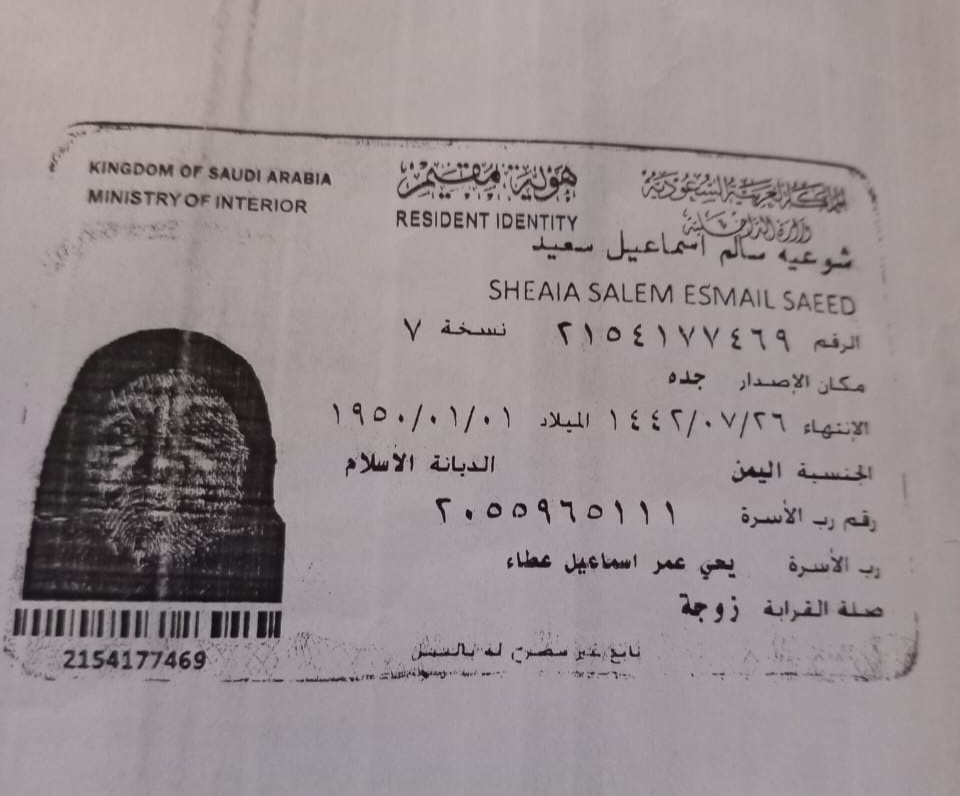 KINGDOM OF SAUDI ARABIA
MINISTRY OF INTERIOR
هوية مقيم
RESIDENT IDENTITY
المملكة العربية السعودية
وزارة الداخلية
شوعيه سالم اسماعيل سعيد
SHEAIA SALEM ESMAIL SAEED
الرقم ٢١٥٤١٧٧٤٦٩ نسخة ٧
مكان الإصدار جده
الإنتهاء ١٤٤٢/٠٧/٢٦ الميلاد ١٩٥٠/٠١/٠١
الجنسية اليمن الديانة الاسلام
رقم رب الأسرة ٢٠٥٥٩٦٥١١١
رب الأسرة يحي عمر اسماعيل عطاء
صلة القرابة زوجة
تابع غير مصرح له بالعمل
2154177469